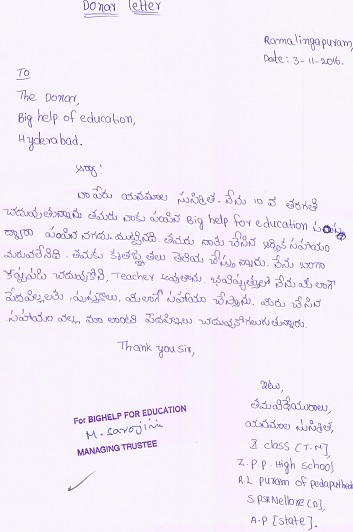 Donar letter
Ramalingapuram,
Date: 3-11-2016.
To
The Donar,
Big help of education,
Hyderabad.
ఆర్యా!
నా పేరు యనమాల సుస్మిత. నేను 10 వ తరగతి
చదువుతున్నాను తమరు నాకు పంపిన Big help for education సంస్థ
ద్వారా పంపిన నగదు ముట్టినది. తమరు నాకు చేసిన ఆర్థిక సహాయం
మరువలేనిది. తమకు కృతజ్ఞతలు తెలియ చేస్తున్నాను. నేను బాగా
కష్టపడి చదువుకొని, Teacher అవుతాను. భవిష్యత్తులో నేను మీ లాగా
పేదపిల్లలకు పుస్తకాలు, సహాయం చేస్తాను. మీరు చేసిన
సహాయం వల్ల మా లాంటి పేదపిల్లలు చదువుకోగలుగుతున్నారు.
Thank you sir,
ఇట్లు,
తమ విధేయురాలు,
యనమాల సుస్మిత,
X class [T.M],
Z.P.P. High school
R.L puram of pedaputhedu
S.P.S.R Nellore [D],
A.P [state].
For BIGHELP FOR EDUCATION
M. Sarojini
MANAGING TRUSTEE